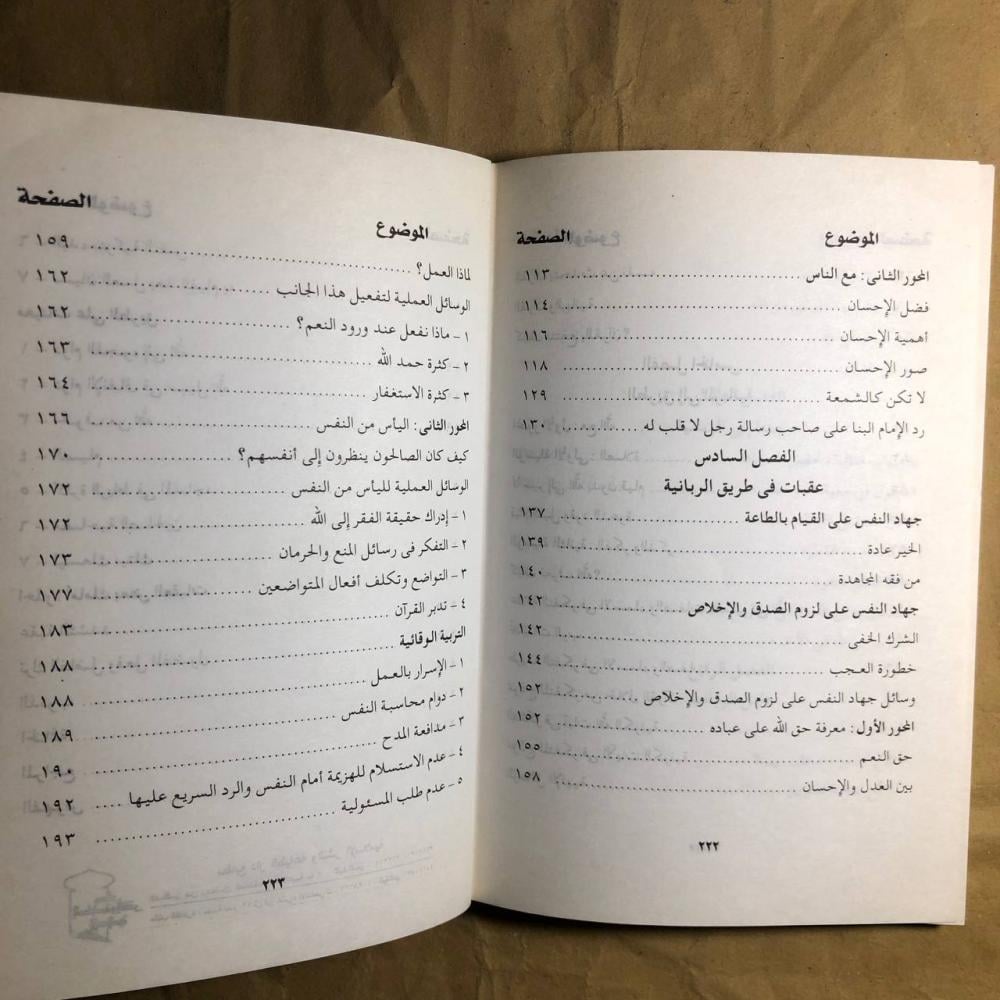 الموضوع الصفحة
المحور الثانى: مع الناس ١١٣
فضل الإحسان ١١٤
أهمية الإحسان ١١٦
صور الإحسان ١١٨
لا تكن كالشمعة ١٢٩
رد الإمام البنا على صاحب رسالة رجل لا قلب له ١٣٠
الفصل السادس
عقبات فى طريق الربانية
جهاد النفس على القيام بالطاعة ١٣٧
الخير عادة ١٣٩
من فقه المجاهدة ١٤٠
جهاد النفس على لزوم الصدق والإخلاص ١٤٢
الشرك الخفى ١٤٢
خطورة العجب ١٤٤
وسائل جهاد النفس على لزوم الصدق والإخلاص ١٥٢
المحور الأول: معرفة حق الله على عباده ١٥٢
حق النعم ١٥٥
بين العدل والإحسان ١٥٨
٢٢٢
الموضوع الصفحة
لماذا العمل؟ ١٥٩
الوسائل العملية لتفعيل هذا الجانب ١٦٢
١ - ماذا نفعل عند ورود النعم؟ ١٦٢
٢ - كثرة حمد الله ١٦٣
٣ - كثرة الاستغفار ١٦٤
المحور الثانى: اليأس من النفس ١٦٦
كيف كان الصالحون ينظرون إلى أنفسهم؟ ١٧٠
الوسائل العملية للياس من النفس ١٧٢
١ - إدراك حقيقة الفقر إلى الله ١٧٢
٢ - التفكر فى رسائل المنع والحرمان ١٧٣
٣ - التواضع وتكلف أفعال المتواضعين ١٧٧
٤ - تدبر القرآن ١٨٣
التربية الوقائية ١٨٨
١ - الإسرار بالعمل ١٨٨
٢ - دوام محاسبة النفس ١٨٩
٣ - مدافعة المدح ١٩٠
٤ - عدم الاستسلام للهزيمة أمام النفس والرد السريع عليها ١٩٢
٥ - عدم طلب المسئولية ١٩٣
٢٢٣